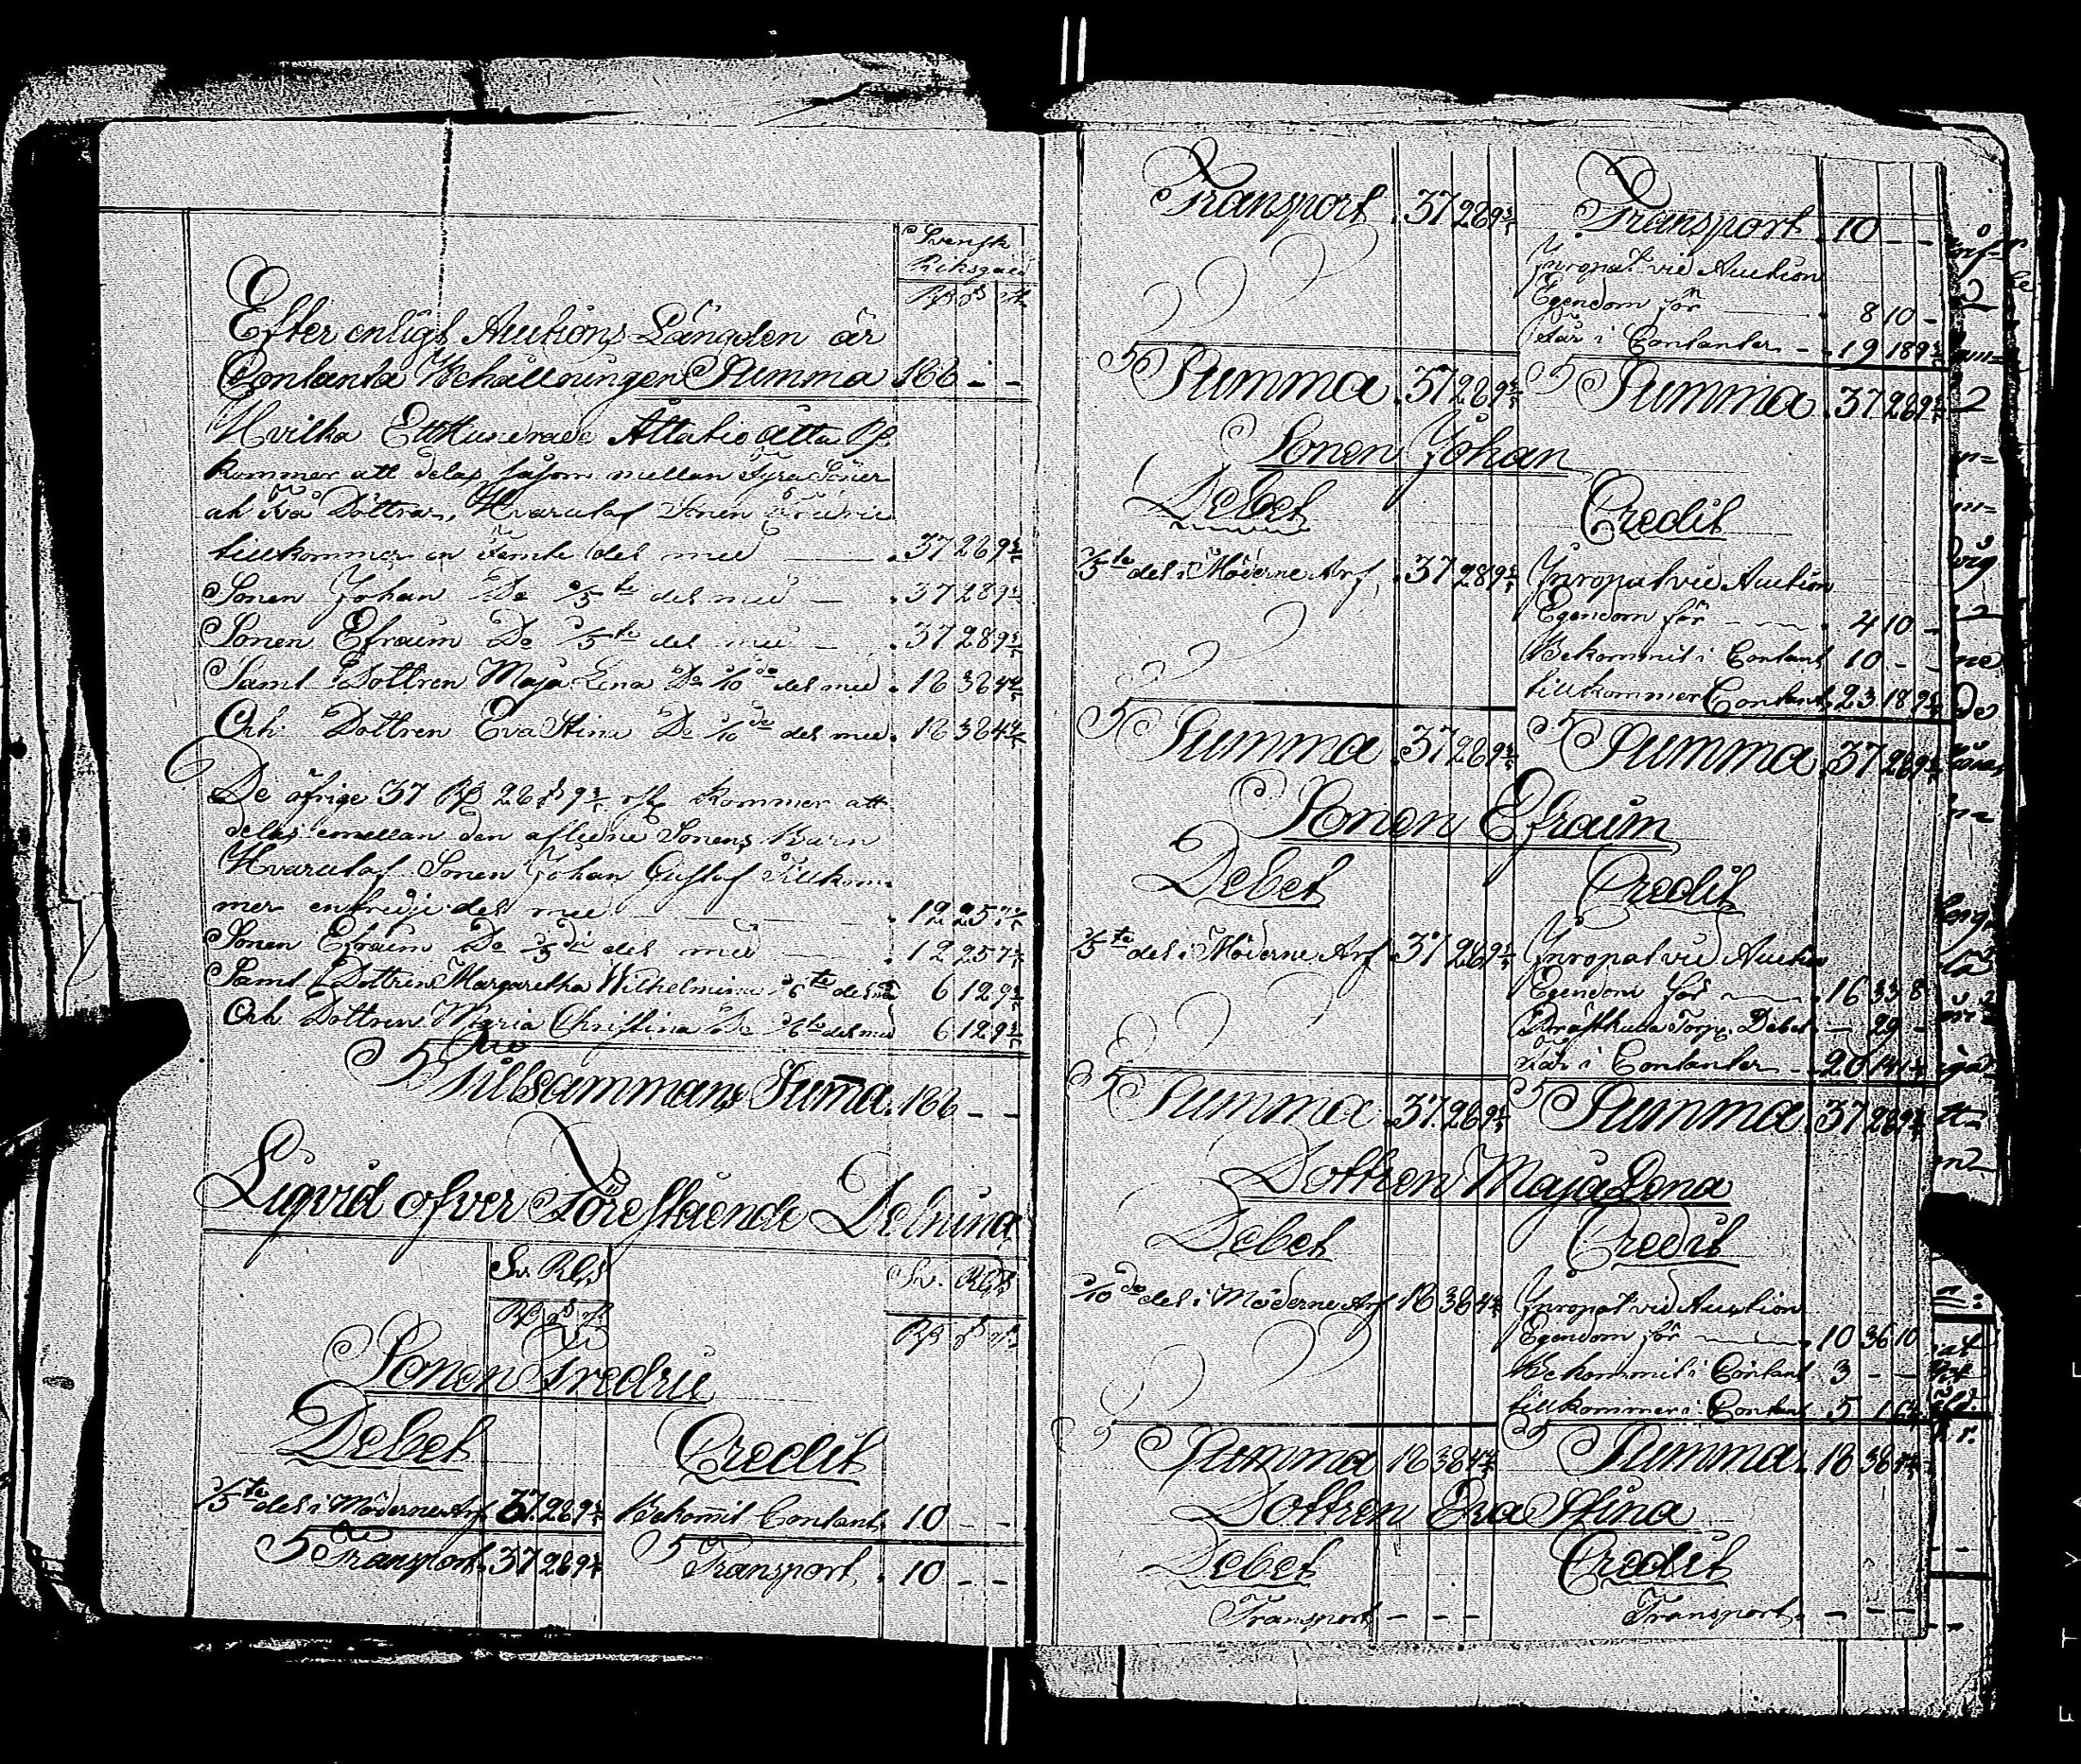 Svensk
Riksgäld
Rß ß rst
Efter enligt Auctions Längden är
Contanta Behållningen Summa 188 - -
Hvilka Etthundrade Åttatio åtta Rß
kommer att delas såsom mellan fyra Söner
ah två Döttrar, Hvarutaf Sonen Fredric
tillkommer en femte del med 37 28 9 3/5
Sonen Johan Do 1/5te del med 37 28 9 3/5
Sonen Efraim Do 1/5te del med 37 28 9 3/5
Samt Dottren Maja Lena Do 1/10de del med 18 38 4 4/5
Och Dottren Eva Stina Do 1/10de del med 18 38 4 4/5
De öfrige 37 Rß 28 ß 9 3/5 rst kommer att
delas emellan den aflidne Sonens Barn
Hvarutaf Sonen Johan Gustaf Tillkom-
mer en tredje del med 12 25 7
Sonen Efraim Do 1/3di del med 12 25 7
Samt Dottren Margaretha Wilhelmina 1/6te del med 6 12 9 3/5
Och Dottren Maria Christina Do 1/6te del med 6 12 9 3/5
Tillsammans Suma 188 - -
Liqvid öfver Förestående Delning
Sv. Rgs Sv. Rgs
Rß ß rst Rß ß rst
Sonen Fredric
Debet Credit
1/5te del i Möderne Arf 37 28 9 3/5 Bekomit Contant 10 - -
Transport 37 28 9 3/5 Transport 10 - -
Transport 37 28 9 3/5 Transport 10 - -
Inropat vid Auction
Egendom för 8 10 -
får i Contanter 19 18 9 3/5
Summa 37 28 9 3/5 Summa 37 28 9 3/5
Sonen Johan
Debet Credit
1/5te del i Möderne Arf 37 28 9 3/5 Inropat vid Auction
Egendom för 4 10 -
Bekommit i Contant 10 - -
tillkommer Contant 23 18 9 3/5
Summa 37 28 9 3/5 Summa 37 28 9 3/5
Sonen Efraim
Debet Credit
1/5te del i Möderne Arf 37 28 9 3/5 Inropat vid Auction
Egendom för 16 33 8
Torp. Debet - 29 -
får i Contanter 20 14 1 3/5
Summa 37 28 9 3/5 Summa 37 28 9 3/5
Dottren Maja Lena
Debet Credit
1/10de del i Möderne Arf 18 38 4 4/5 Inropat vid Auction
Egendom för 10 36 10
Bekommit i Contant 3 - -
tillkommer i Contant 5 1 6 4/5
Summa 18 38 4 4/5 Summa 18 38 4 4/5
Dottren Eva Stina
Debet Credit
Transport - - - Transport - - -